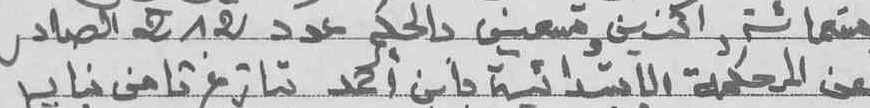 مستمائة واثنين وتسعين والحكم عدد 212 الصادر
عن المحكمة الابتدائية بابن أحمد بتاريخ ثامن فناير